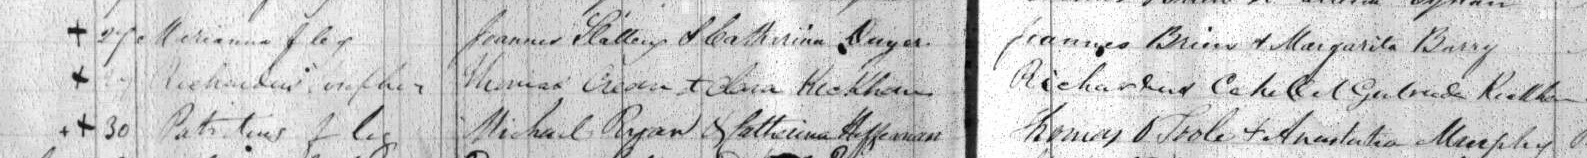 + 29 Marianna f leg Joannes Slattery & Catherina Dwyer Joannes Brien & Margarita Barry
+ 29 Richardus Thomas Crean & Clara Kickham Richardus Cahill & Gertruda Kickham
+ 30 Patritius f leg Michael Ryan & Catherina Heffernan Thomas O Toole & Anastatia Murphy